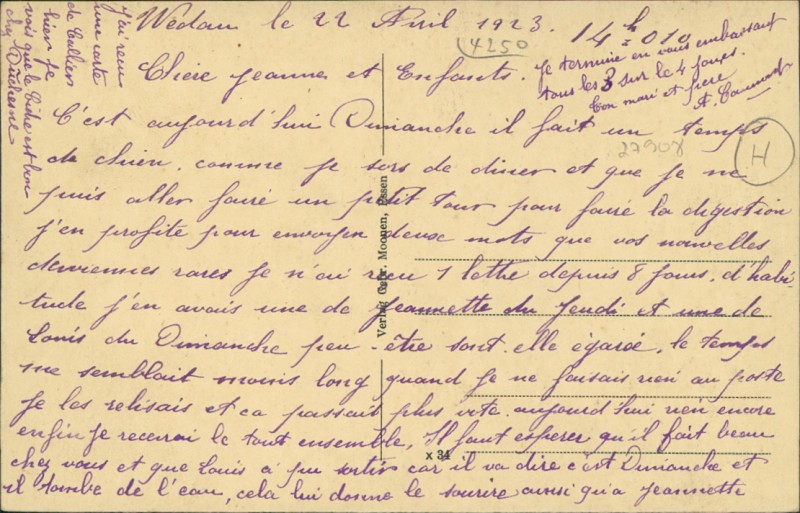 Wedau le 22 Avril 1923. 14h 010
4250
Chère Jeanne et Enfants.
C'est aujourd'hui Dimanche il fait un temps
de chien, comme je sors de diner et que je ne
puis aller faire un petit tour pour faire la digestion
j'en profite pour envoyer deux mots que vos nouvelles
deviennes rares je n'ai reçu 1 lettre depuis 8 jours, d'habi-
tude j'en avais une de Jeannette du Jeudi et une de
Louis du Dimanche peu-être sont-elle égaré, le temps
me semblait moins long quand je ne faisais rien au poste
je les relisais et ca passait plus vite aujourd'hui rien encore
enfin je recevrai le tout ensemble, Il faut esperer qu'il fait beau
chez vous et que Louis a pu sortir car il va dire c'est Dimanche et
il tombe de l'eau, cela lui donne le sourire aussi qu'a Jeannette
Je termine en vous embrassant
tous les 3 sur le 4 joues.
Ton mari et frere
A.
27908
H
J'ai reçu
une carte
de
hier je
vois que le est bon
chez Duchesne
Verlag Gebr. Moonen, Essen
x 34